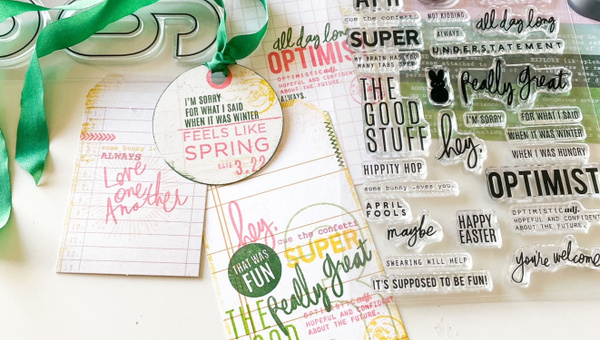 all day long
OPTIMIS
OPTIMISTIC adj.
HOPEFUL AND CONFIDENT
ABOUT THE FUTURE.
ALWAYS.
I'M SORRY
FOR WHAT I SAID
WHEN IT WAS WINTER
FEELS LIKE
SPRING
DATE 3.22
some bunny
ALWAYS
Love
one
Another
hey.
cue the confetti
SUPER
THAT WAS
FUN
Really Great
THE
GOOD
OPTIMISTIC adj.
HOPEFUL AND CONFIDENT
ABOUT THE FUTURE.
cue the confetti.
NOT KIDDING
all day long
SUPER
ALWAYS
UNDERSTATEMENT
MY BRAIN HAS TOO
MANY TABS OPEN
Really Great
THE
GOOD
STUFF
hey
I'M SORRY
FOR WHAT I SAID
WHEN IT WAS WINTER
WHEN IT WAS HUNGRY
HIPPITY HOP
some bunny loves you
OPTIMIST
APRIL
FOOLS
maybe
HAPPY
EASTER
OPTIMISTIC adj.
HOPEFUL AND CONFIDENT
ABOUT THE FUTURE.
SWEARING WILL HELP
you're welcome
IT'S SUPPOSED TO BE FUN!